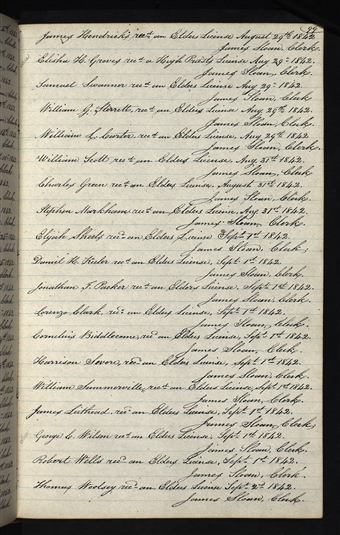 James Hendricks rec^d an Elders License August 29th 1842.
James Sloan, Clerk.
Elisha H. Groves rec^d a High Priests License Aug 29th 1842.
James Sloan, Clerk.
Samuel rec^d an Elders License Aug 29th 1842.
James Sloan, Clerk
William G. Sterrett, rec^d an Elders License Aug. 29th 1842.
James Sloan, Clerk.
William rec^d an Elders License, Aug. 29th 1842.
James Sloan, Clerk.
William Scott rec^d an Elders License, Aug. 31st 1842.
James Sloan, Clerk.
Charles Green rec^d an Elders License, August 31st 1842.
James Sloan, Clerk
Stephen Markham rec^d an Elders License, Aug. 31st 1842.
James Sloan, Clerk
Elijah Sheets rec^d an Elders License Sept. 1st 1842.
James Sloan, Clerk;
Daniel H. Keeler rec^d an Elders License, Sept. 1st 1842.
James Sloan, Clerk.
Jonathan T. Packer rec^d an Elders License, Sept. 1st 1842.
James Sloan, Clerk.
Lorenzo Clark, rec^d an Elders License, Sept. 1st 1842.
James Sloan, Clerk.
Cornelius Biddlecome, rec^d an Elders License, Sept. 1st 1842.
James Sloan, Clerk.
Harrison rec^d an Elders License, Sept. 1st 1842.
James Sloan, Clerk.
William Summerville, rec^d an Elders License, Sept. 1st 1842.
James Sloan, Clerk.
James rec^d an Elders License, Sept. 1st 1842.
James Sloan, Clerk,
George C. Wilson rec^d an Elders License, Sept. 1st 1842.
James Sloan, Clerk.
Robert Wells rec^d an Elders License, Sept. 1st 1842.
James Sloan, Clerk.
Thomas Woolsey rec^d an Elders License Sept. 2d 1842.
James Sloan, Clerk.